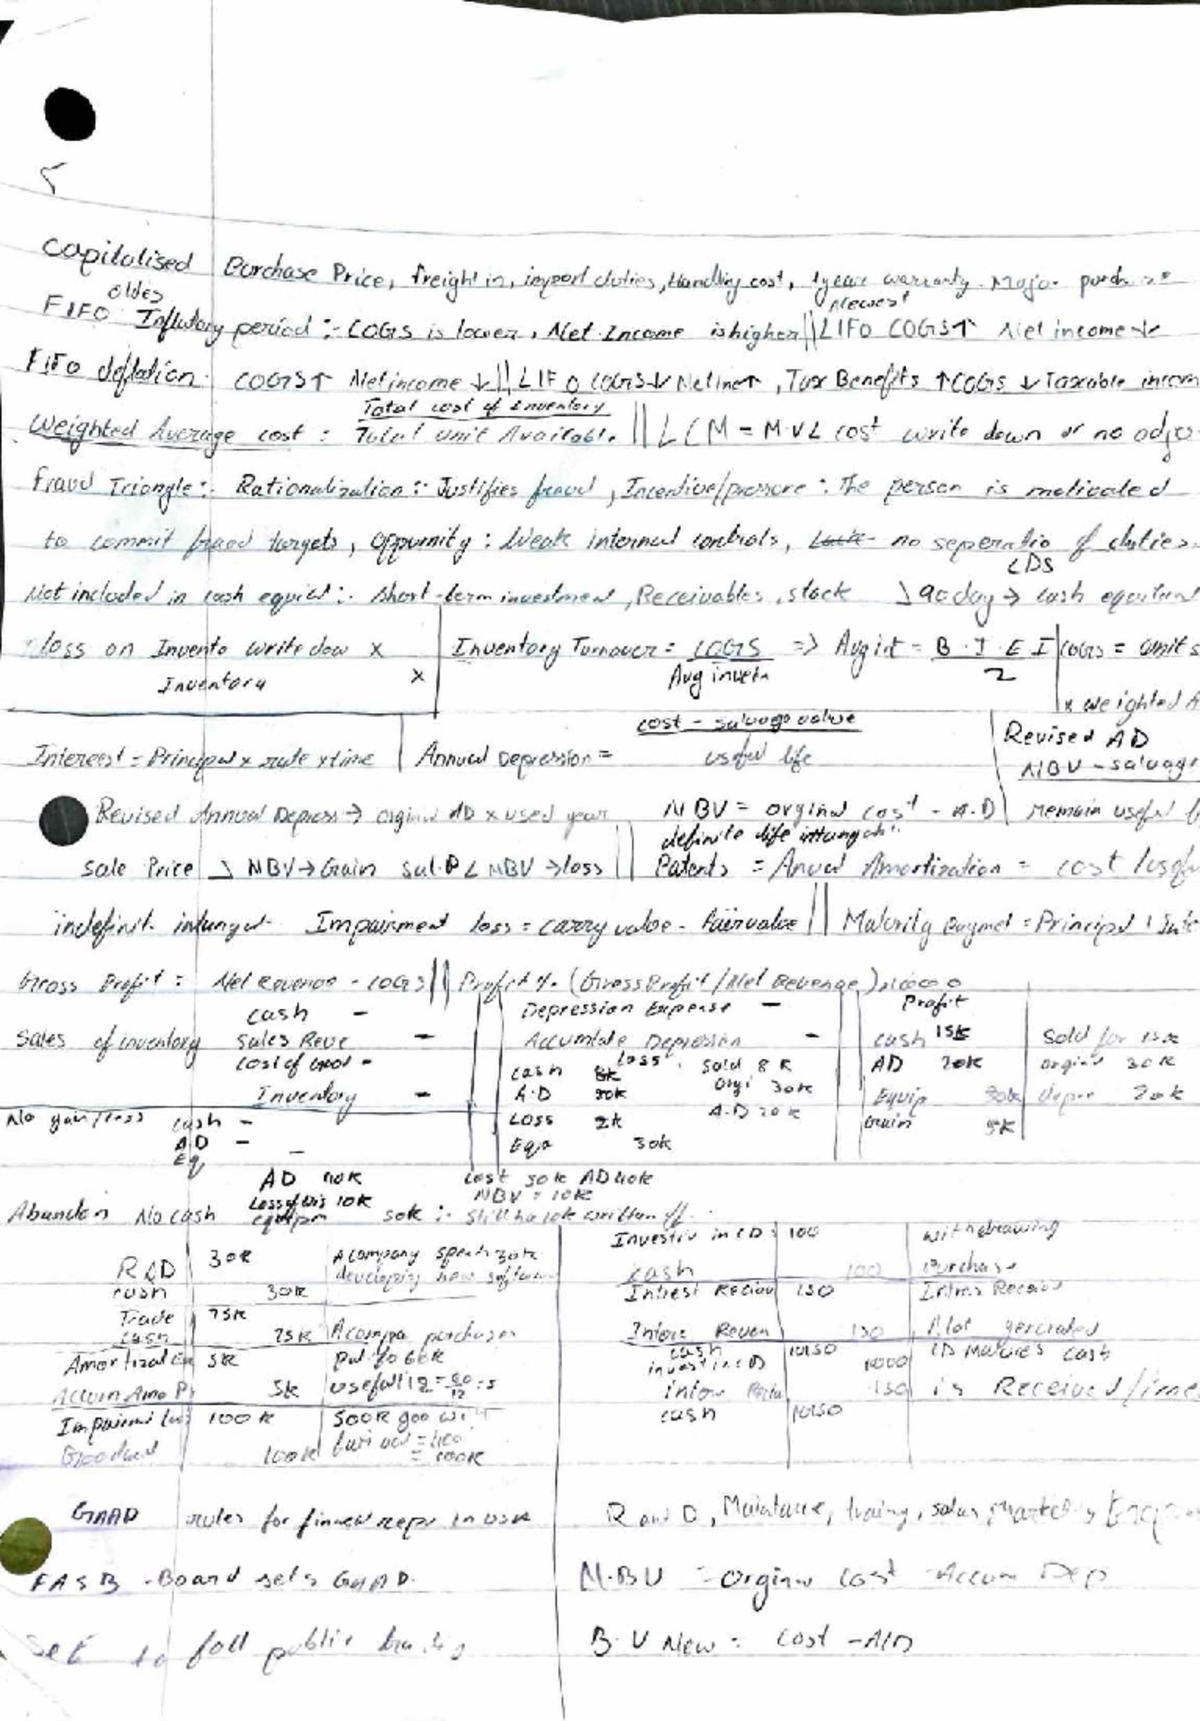 Capitalised Purchase Price, freight in, import duties, Handling cost, 1year warranty. Major purchase
oldes Newest
FIFO Inflatory period :- COGS is lower, Net Income is higher || LIFO COGS↑ Net income ↓
FIFO deflation. COGS↑ Net income ↓ || LIFO COGS↓ Net Inc↑, Tax Benefits ↑COGS ↓Taxable incom
Total cost of Inventory
Weighted Average cost : Total unit Available. || LCM = MVL cost write down or no adjes
Fraud Triangle:- Rationalization:- Justifies fraud, Incentive/pressure : The person is motivated
to commit fraud targets, oppurnity : Weak internal controls, no seperatio of duties.
CDS
Not included in cash equiel:- Short-term investment, Receivables, stock 90 day → cash equivlent
loss on Invento write dow x
Inventory x
Inventory Turnover = COGS => Avg int = B.I.E I COGS = unit s
Avg inveta 2
x weighted A
Interest = Principal x rate x time
Annual Depression = cost - salvage value
useful life
Revised AD
NBV - salvage
Remain useful
Revised Annual Depress → orginal AD x used year NBV = orginal cost - A.D
definite life intangab
Sale Price > NBV → Gain Sal.P < NBV → loss || Patents = Anual Amortization = cost /usefu
indefinit. intangat. Impairment loss = carry value - fairvalue || Maturity Paymet = Principal + Inte
Gross Profit = Net Revenue - COGS || Profit % (Gross Profit / Net Revenue)
Sales of inventory
cash -
Sales Reve -
cost of good -
Inventory -
Depression Expense -
Accumlate Depression -
loss: Sold 8K
cash 8K
Orgi 30K
A.D 20K
A.D 20K
Loss 2K
Equ 30K
Profit
cash 15K
AD 20K
Equip 30K
Gain 5K
Sold for 15K
orginal 30K
depre 20K
No gain/loss cash -
AD -
Eq -
AD 40K
Cost 50K AD 40K
NBV = 10K
Abandon No cash Loss of dis 10K
equipm 50K :- still has 10K written off.
R&D 30K
cash 30K
A company spent 30K
developing new software
Trade 75K
cash 75K
A compa purchases
Amortizat Ex 5K
Accum Amo P 5K
Impairmt Los 100K
Goodwil 100K
Investiv in CD 100
cash 100
withdrawing
purchase
Intrest Recieu 150
Intere Reven 150
Intres Receiv
Not generated
cash 10150
invest in CD 10000
150
CD matures cash
is Received
cash 10150
GAAP rules for finncal repo in USA
R and D, Maintance, traing, sales,
FASB - Board sets GAAP.
N.B.V = Orginal cost - Accum Dep
Set to foll public
B.V New = cost - A/D